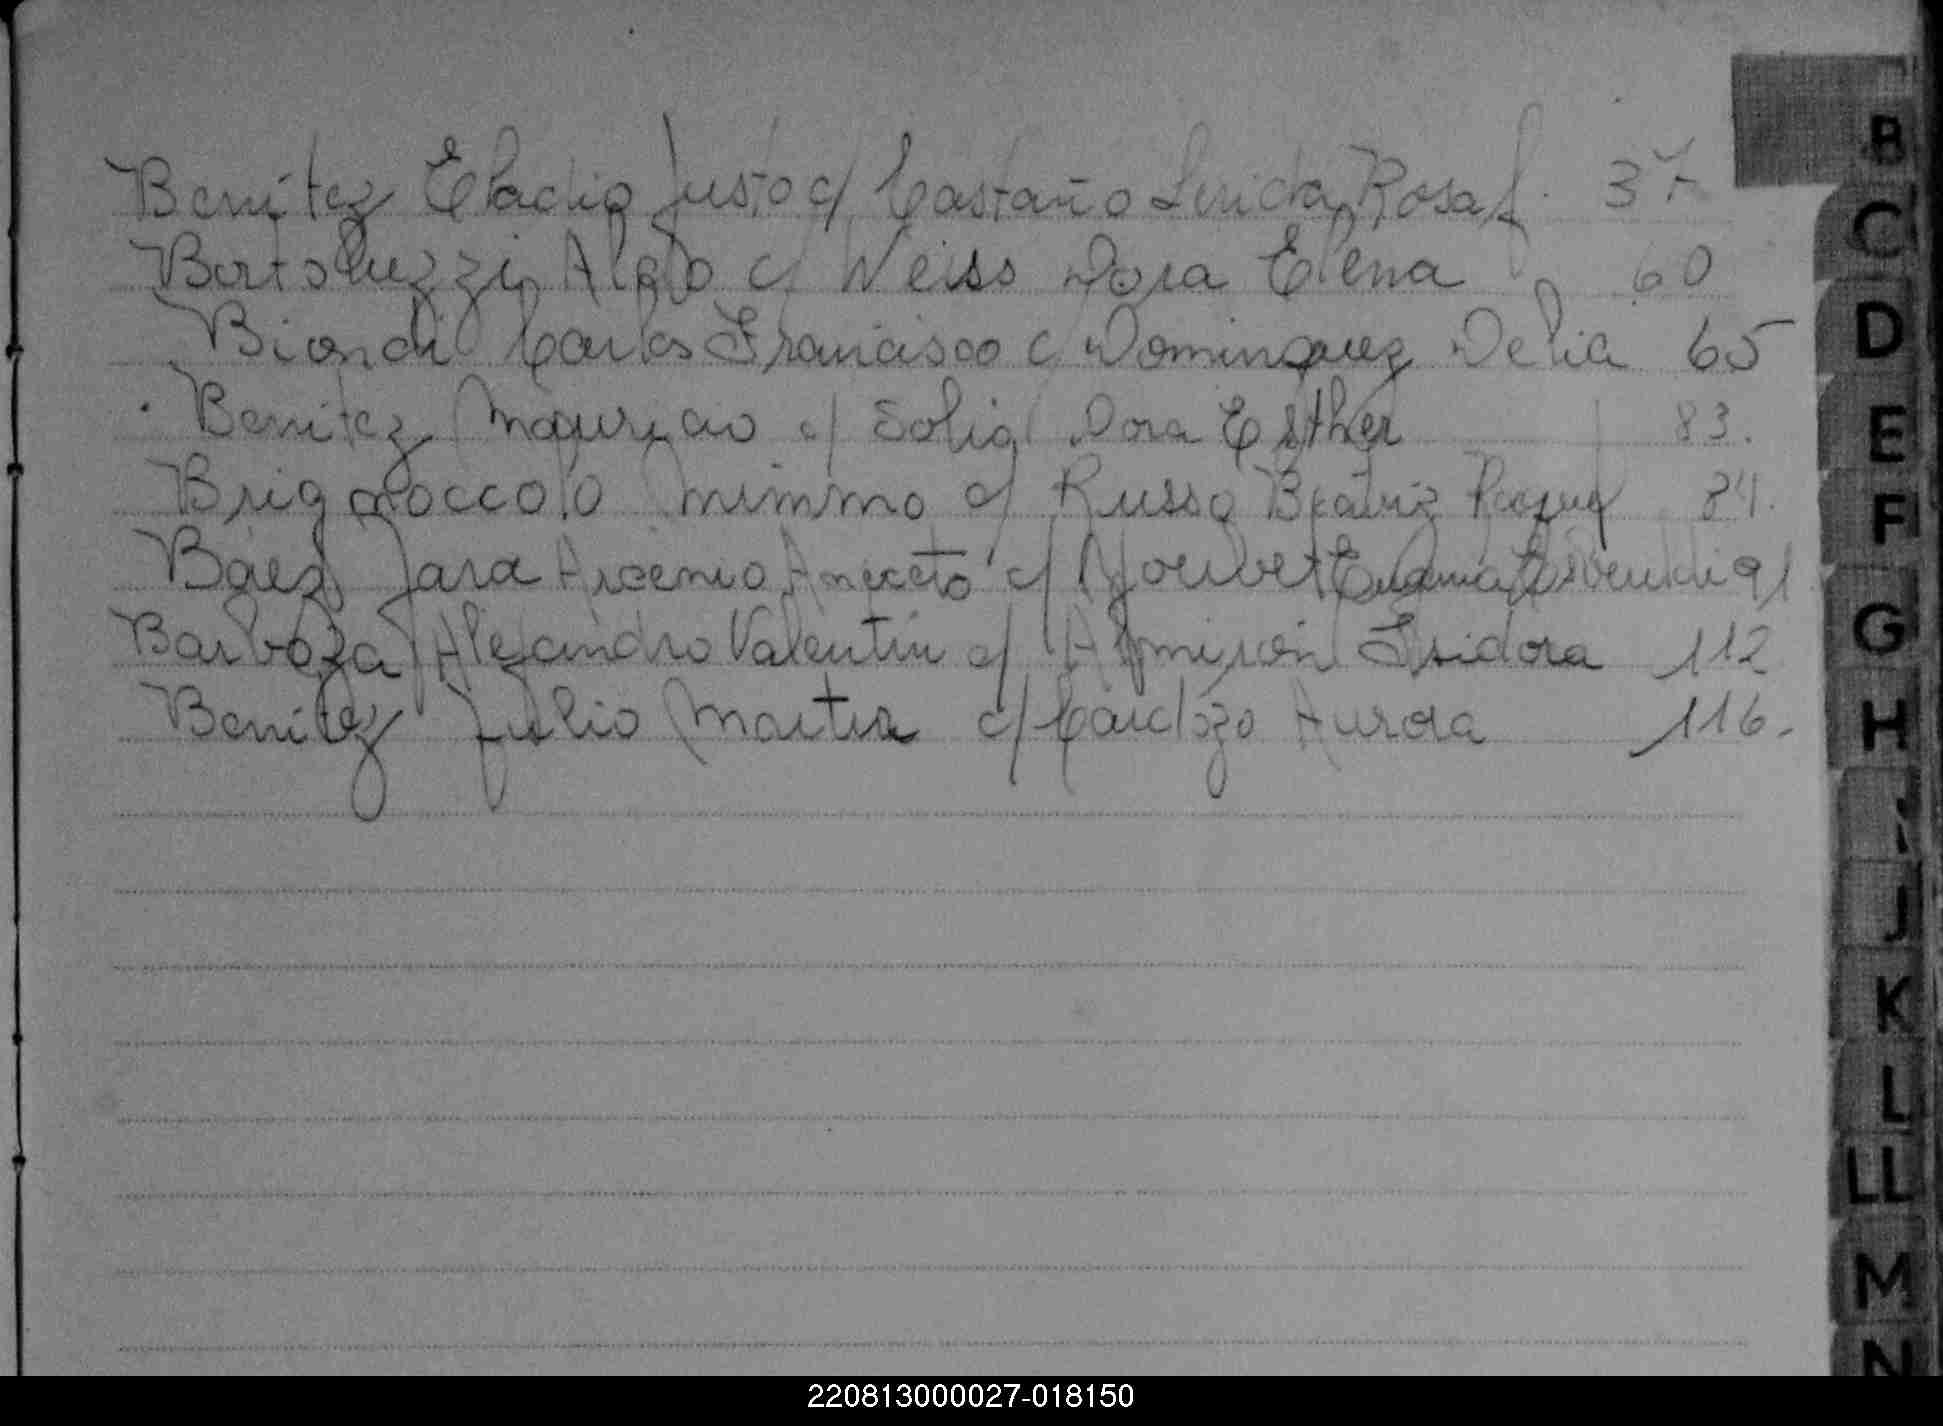 Benítez Eladio Justo c/ Castaño Lerida Rosa f. 37
B
Bortoluzzi Aldo c/ Weiss Dora Elena 60
C
Biondi Carlos Francisco c/ Dominguez Delia 65
D
Benítez Mauricio c/ Solis Dora Esther 83.
E
Brignoccolo Mimmo c/ Russo Beatriz Raquel 84.
F
Báez Jara Arsenio Aniceto c/ 91
Barboza Alejandro Valentín c/ Almirón Isidora 112
G
Benítez Julio Martín c/ Cardozo Aurora 116.
H
I
J
K
L
LL
M
N
220813000027-018150